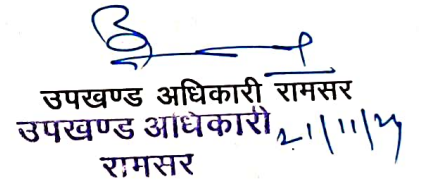 उपखण्ड अधिकारी रामसर
उपखण्ड अधिकारी 21/11/24
रामसर